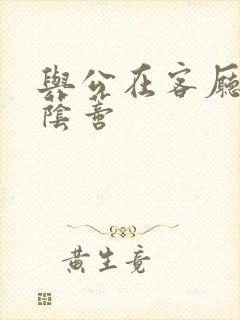 與公在客廳
陰善
黃生竟